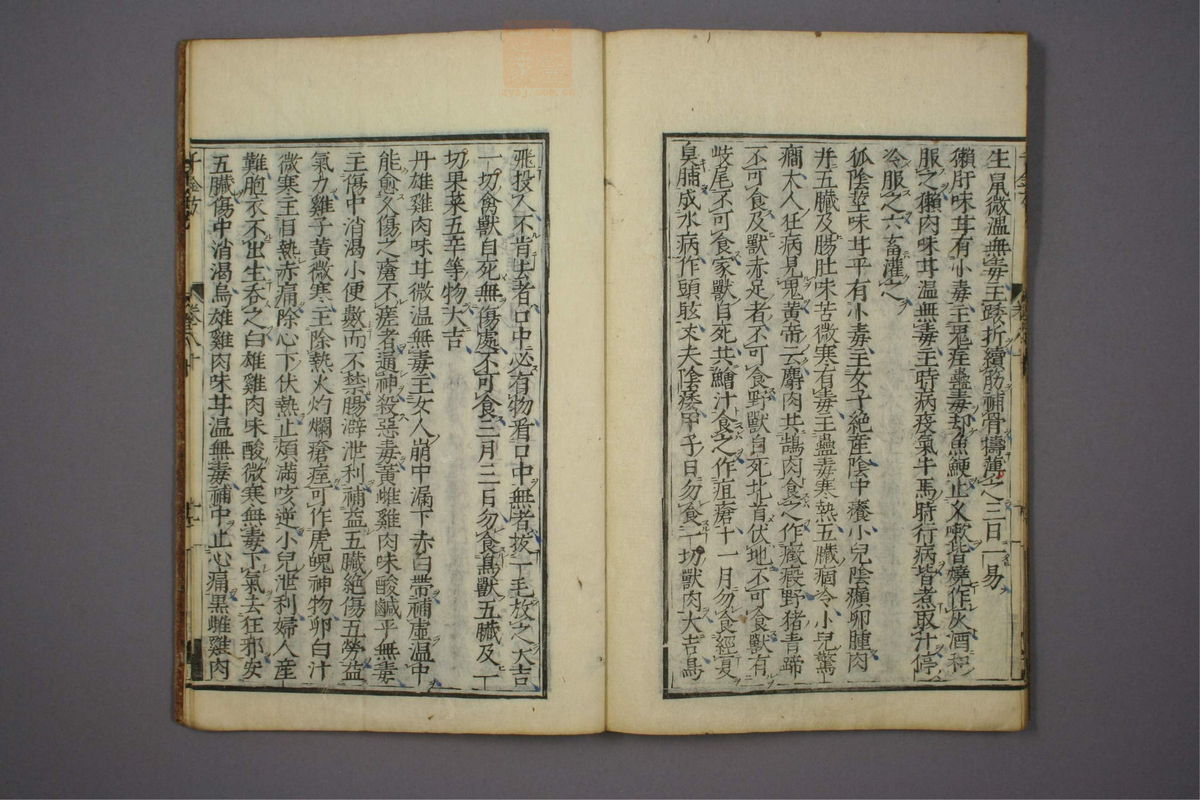 生鼠微溫無毒主踒折續筋補骨擣薄之三日一易
獺肝味甘有小毒主鬼疰蠱毒却魚鯁止久嗽皆燒作灰酒和
服之獺肉味甘溫無毒主時病疫氣牛馬時行病皆煮取汁停
冷服之六畜灌之
狐陰莖味甘平有小毒主女子絕産陰中癢小兒陰㿗卵腫肉
并五臟及腸肚味苦微寒有毒主蠱毒寒熱五臟痼冷小兒驚
癎大人狂病見鬼黃帝云麝肉共鵠肉食之作癥瘕野猪青蹄
不可食及獸赤足者不可食野獸自死北首伏地不可食獸有
岐尾不可食家獸自死共鱠汁食之作疽瘡十一月勿食經夏
臭脯成水病作頭眩丈夫陰痿甲子日勿食一切獸肉大吉鳥
飛投人不肯去者口中必有物看口中無者拔一毛放之大吉
一切禽獸自死無傷處不可食三月三日勿食鳥獸五臟及一
切果菜五辛等物大吉
丹雄雞肉味甘微溫無毒主女人崩中漏下赤白帶補虛溫中
能愈久傷之瘡不瘥者通神殺惡毒黃雌雞肉味酸鹹平無毒
主傷中消渴小便數而不禁腸澼泄利補益五臟絕傷五勞益
氣力雞子黃微寒主除熱火灼爛瘡痓可作虎魄神物卵白汁
微寒主目熱赤痛除心下伏熱止煩滿咳逆小兒泄利婦人産
難胞衣不出生吞之白雄雞肉味酸微寒無毒下氣去狂邪安
五臟傷中消渴烏雄雞肉味甘溫無毒補中止心痛黑雌雞肉